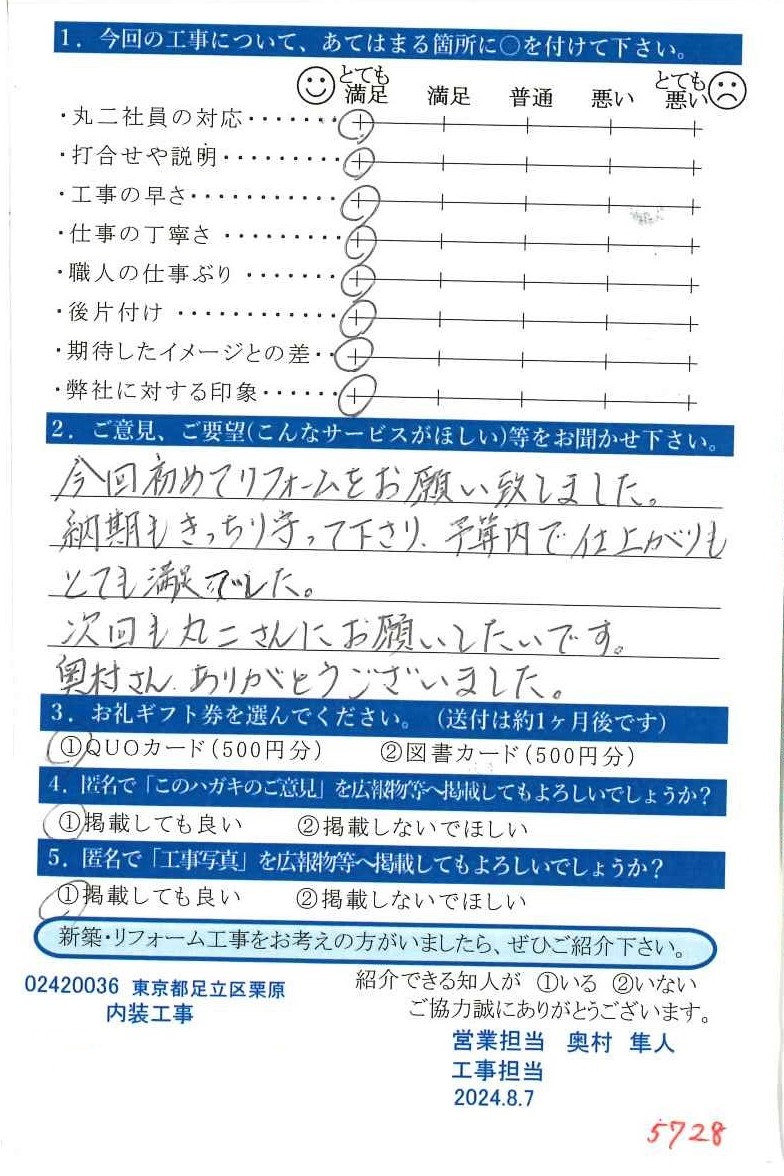 1．今回の工事について、あてはまる箇所に○を付けて下さい。
とても満足 満足 普通 悪い とても悪い
・丸二社員の対応・・・・・・・
・打合せや説明・・・・・・・・・
・工事の早さ・・・・・・・・・・・
・仕事の丁寧さ・・・・・・・・・
・職人の仕事ぶり・・・・・・・
・後片付け・・・・・・・・・・・・
・期待したイメージとの差・・
・弊社に対する印象・・・・・・
2．ご意見、ご要望(こんなサービスがほしい)等をお聞かせ下さい。
今回初めてリフォームをお願い致しました。
納期もきっちり守って下さり、予算内で仕上がりも
とても満足でした。
次回も丸二さんにお願いしたいです。
奥村さん、ありがとうございました。
3．お礼ギフト券を選んでください。（送付は約1ヶ月後です）
①QUOカード(500円分) ②図書カード(500円分)
4．匿名で「このハガキのご意見」を広報物等へ掲載してもよろしいでしょうか？
①掲載しても良い ②掲載しないでほしい
5．匿名で「工事写真」を広報物等へ掲載してもよろしいでしょうか？
①掲載しても良い ②掲載しないでほしい
新築・リフォーム工事をお考えの方がいましたら、ぜひご紹介下さい。
02420036 東京都足立区栗原
内装工事
紹介できる知人が ①いる ②いない
ご協力誠にありがとうございます。
営業担当 奥村 隼人
工事担当
2024.8.7
5728